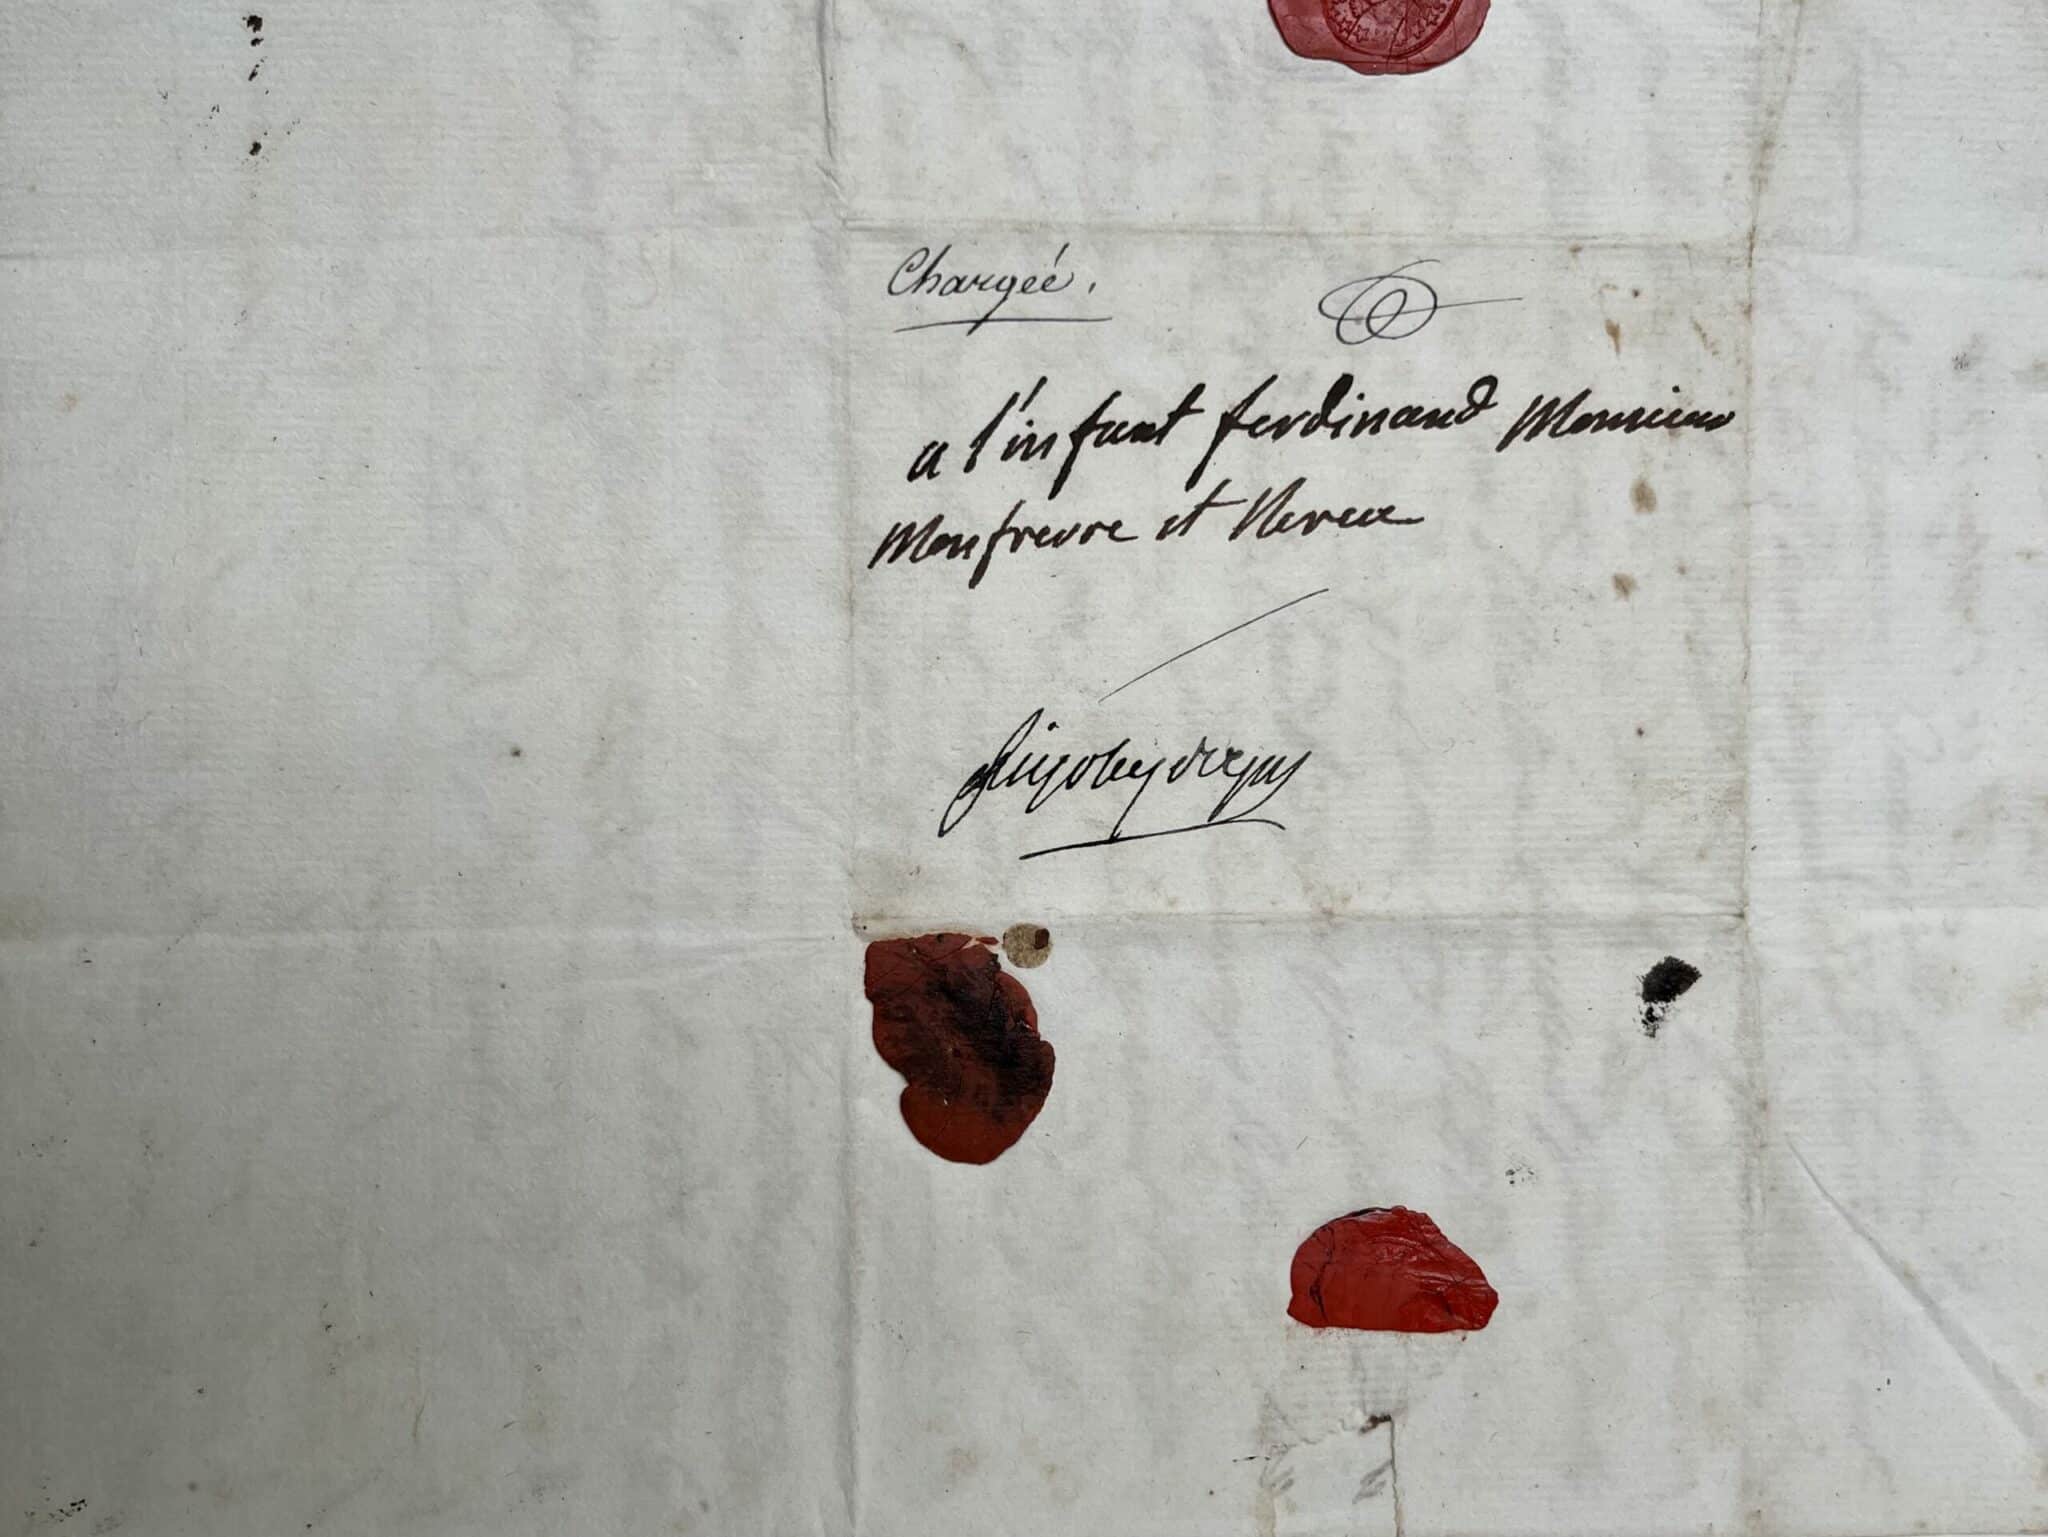 Chargée.
a l'infant ferdinand Monsieur
Monfrere et Neveu